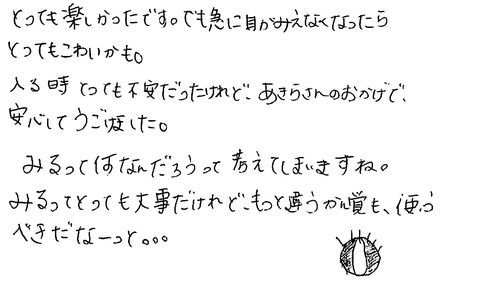 とっても楽しかったです。でも急に目がみえなくなったら
とってもこわいかも。
入る時とっても不安だったけれど、あきらさんのおかげで、
安心してうごけました。
みるって何なんだろうって考えてしまいますね。
みるってとっても大事だけれど、もっと違うかん覚も、使う
べきだなーっと。。。